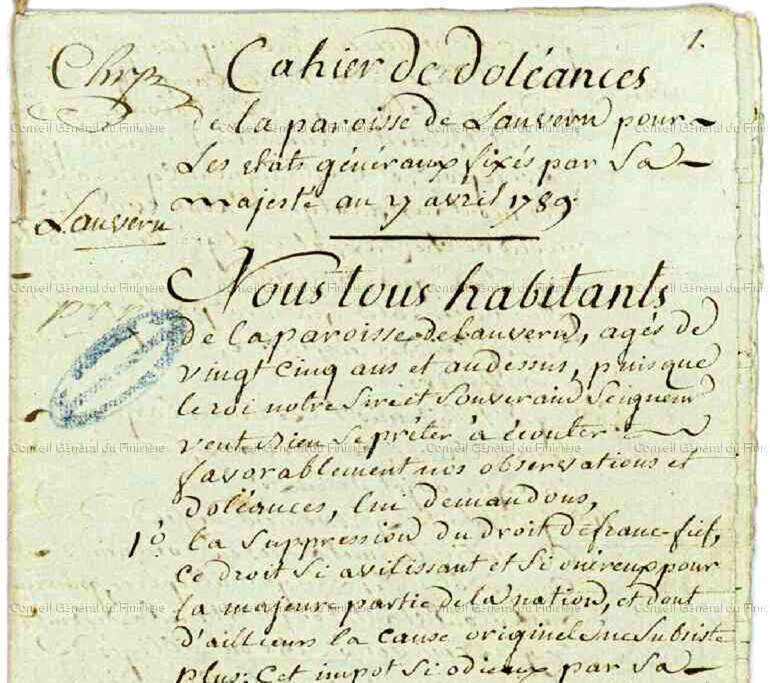 1.
Cahier de doléances
de la paroisse de Lanvern pour
Les etats généraux fixés par Sa
majesté au 27 avril 1789.
Lanvern
Nous tous habitants
de la paroisse de Lanvern, agés de
vingt cinq ans et audessus, puisque
le roi notre Sire et Souverain Seigneur
veut bien se préter à écouter
favorablement nos observations et
doléances, lui demandons,
1° la Suppression du droit de franc-fief,
ce droit Si avilissant et Si onéreux pour
la majeure partie de la nation, et dont
d'ailleurs la cause originele ne Subsiste
plus: Cet impot Si odieux par Sa
Conseil Général du Finistère